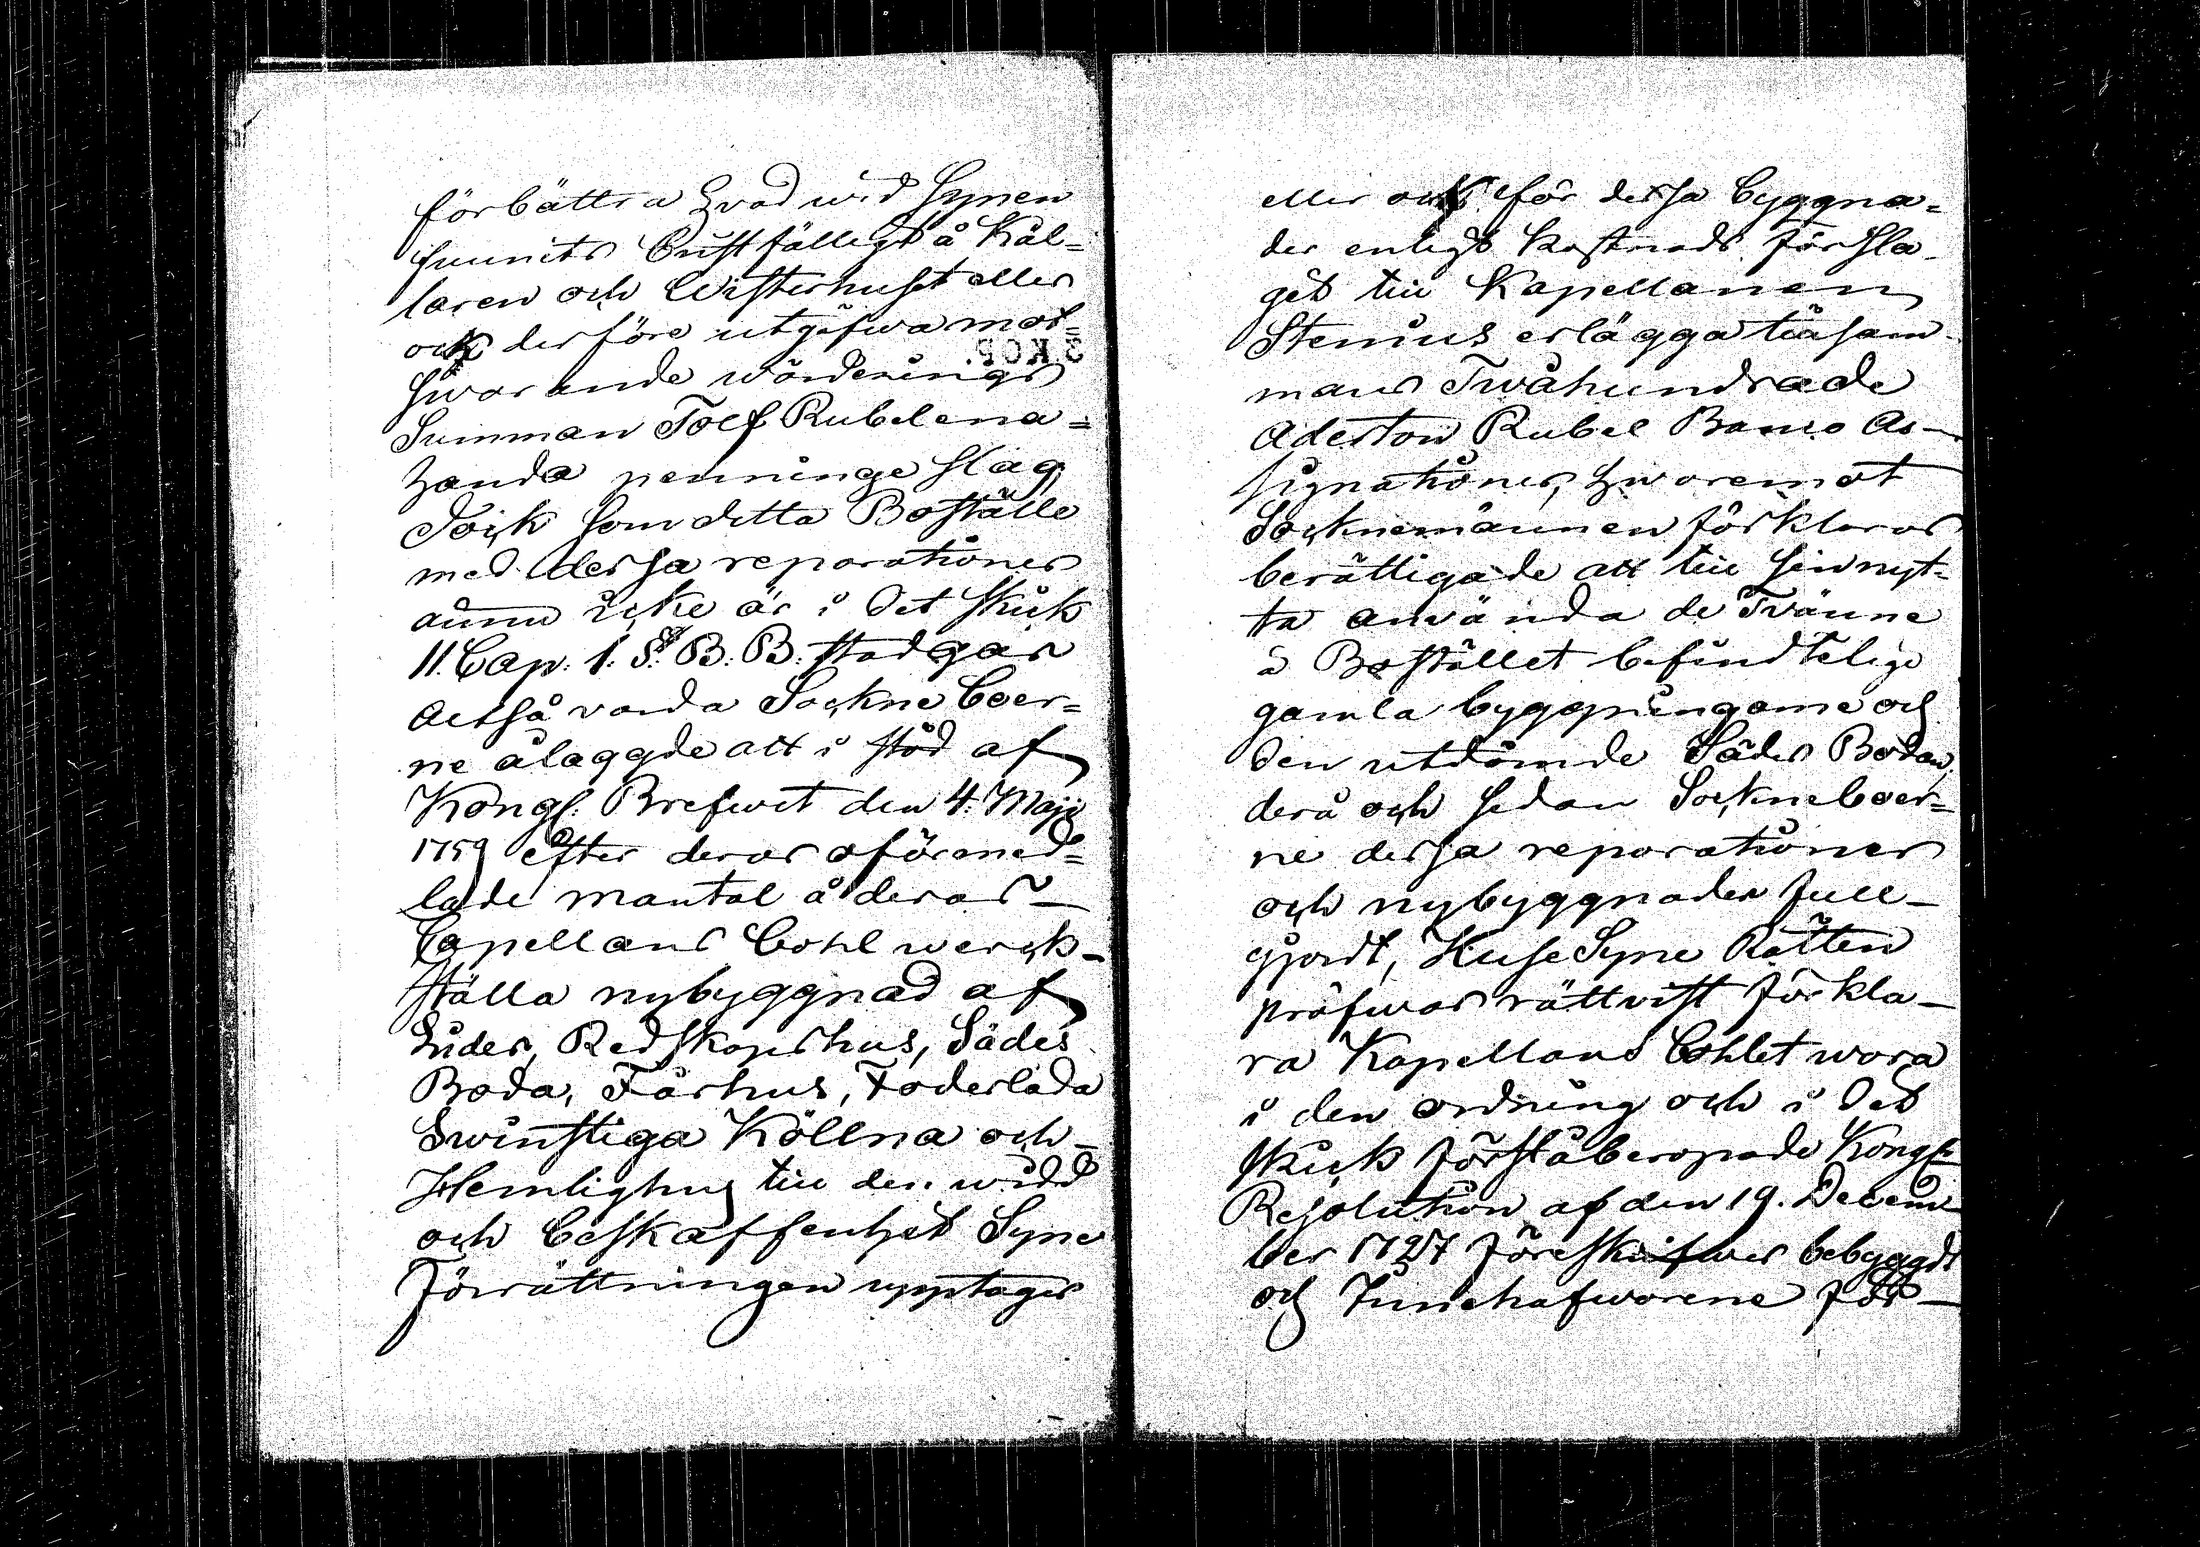 förbättra hvad wid Synen
funnits bristfälligt å Käl=
laren och Wisterhuset eller
ock derföre utgifwa mot=
swarande wärderings
Summan Tolf Rubel ena=
handa penninge slag
Dock som detta Boställe
med dessa reparationer
ännu icke är i det skick
11. Cap: 1. §. B: B: stadgar
Altså varda Sockne boer=
ne ålaggde att i stöd af
Kongl: Brefwet den 4. Maji
1759 efter deras oförmed=
lade mantal å deras
Capellans bohl werck-
ställa nybyggnad af
Lider, Redskapshus, Sädes
Boda, Fårhus, Foderlada
Swinstiga Köllna och
Hemlighus till den widd
och beskaffenhet Syne
Förrättningen upptager
eller ock för dessa byggna=
der enligt kostnads försla-
get till Kapellanen
Stenius erlägga tillsam-
mans Twåhundrade
Aderton Rubel Banco As-
signationer, hwaremot
Socknemännen förklaras
berättigade att till sin nyt=
ta använda de Tvänne
å Bostället befindtelige
gamla byggningarne och
den utdömde Sädes Bodan,
derå och sedan Sockneboer=
ne dessa reparationer
och nybyggnader full-
gjordt, Husesyne Rätten
pröfwar rättvist förkla-
ra Kapellans bohlet wara
i den ordning och i det
skick förståberopade Kongl:
Resolution af den 19. Decem
ber 1727 föreskrifwer bebyggdt
och Innehafwarene för-